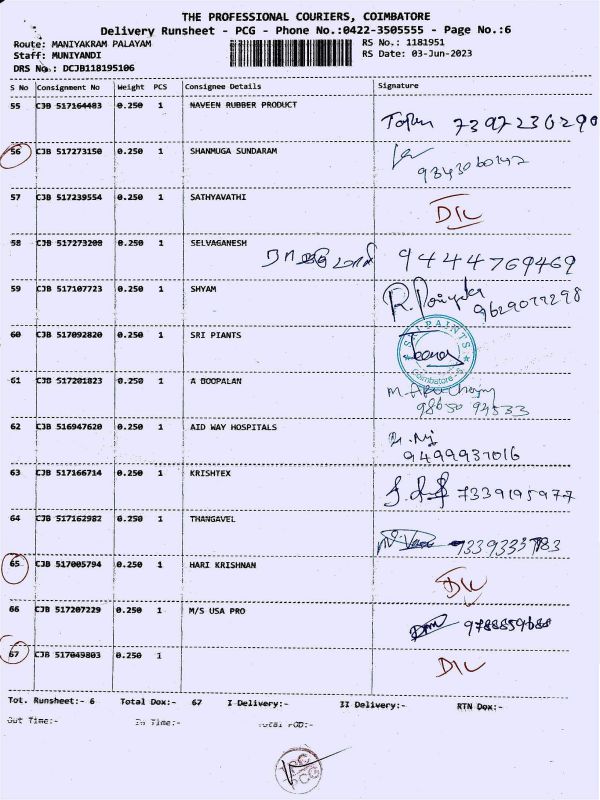 THE PROFESSIONAL COURIERS, COIMBATORE
Delivery Runsheet - PCG - Phone No.:0422-3505555 - Page No.:6
Route: MANIYAKRAM PALAYAM
Staff: MUNIYANDI
DRS No.: DCJB118195106
RS No.: 1181951
RS Date: 03-Jun-2023
S No Consignment No Weight PCS Consignee Details Signature
55 CJB 517164483 0.250 1 NAVEEN RUBBER PRODUCT
7397230290
56 CJB 517273150 0.250 1 SHANMUGA SUNDARAM
57 CJB 517239554 0.250 1 SATHYAVATHI
D/L
58 CJB 517273200 0.250 1 SELVAGANESH 9444769469
59 CJB 517107723 0.250 1 SHYAM
60 CJB 517092820 0.250 1 SRI PIANTS
SRI PAINTS
Coimbatore
61 CJB 517201823 0.250 1 A BOOPALAN
98650 94533
62 CJB 516947620 0.250 1 AID WAY HOSPITALS
9499937016
63 CJB 517166714 0.250 1 KRISHTEX
7339195977
64 CJB 517162982 0.250 1 THANGAVEL
65 CJB 517005794 0.250 1 HARI KRISHNAN
D/L
66 CJB 517207229 0.250 1 M/S USA PRO
67 CJB 517049803 0.250 1
D/L
Tot. Runsheet:- 6 Total Dox:- 67 I Delivery:- II Delivery:- RTN Dox:-
Out Time:- In Time:- Total POD:-